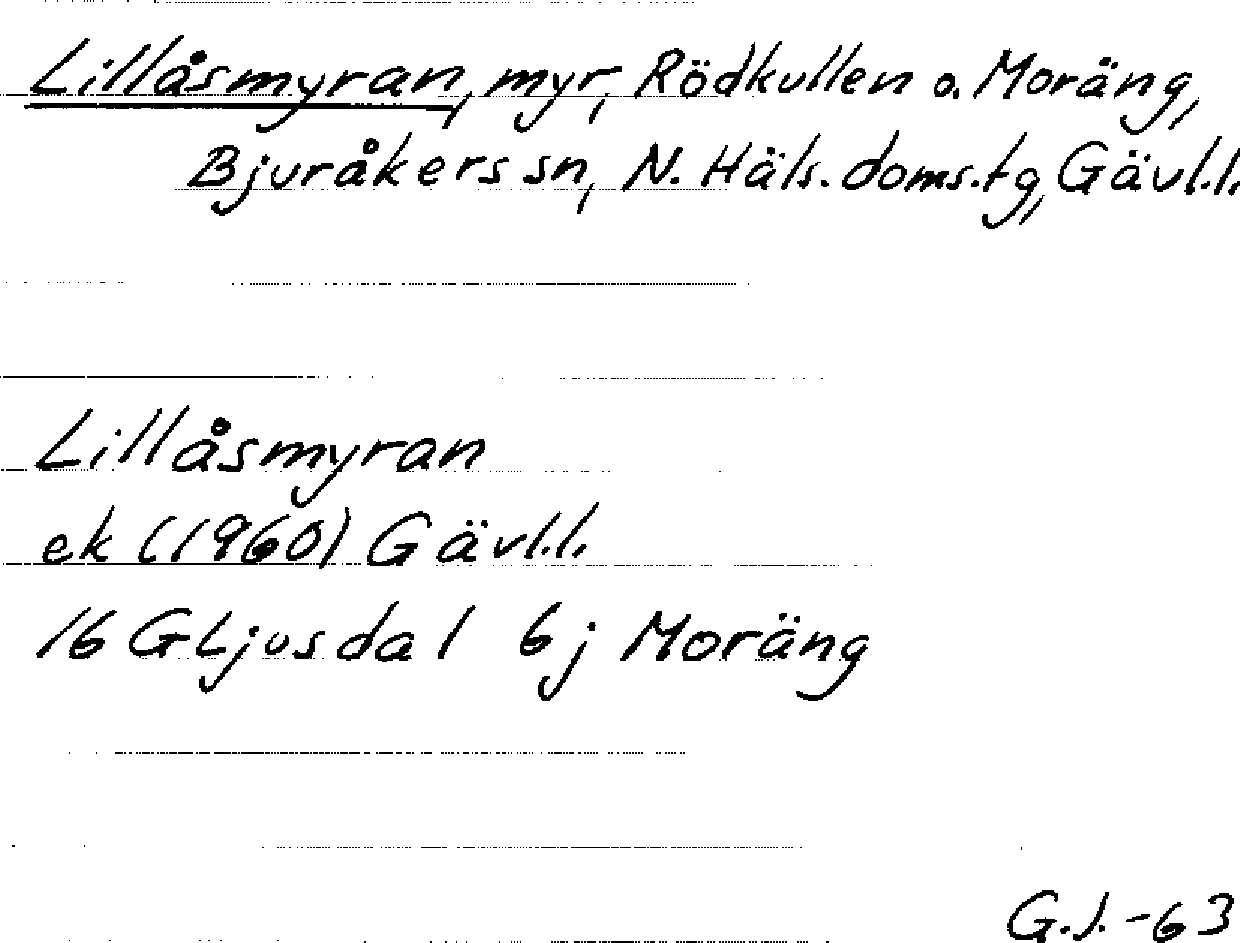 Lillåsmyran, myr, Rödkullen o. Moräng,
Bjuråkers sn, N. Häls. doms.tg, Gävl.l.
Lillåsmyran
ek (1960) Gävl.l.
16 G Ljusdal 6j Moräng
G.J. -63